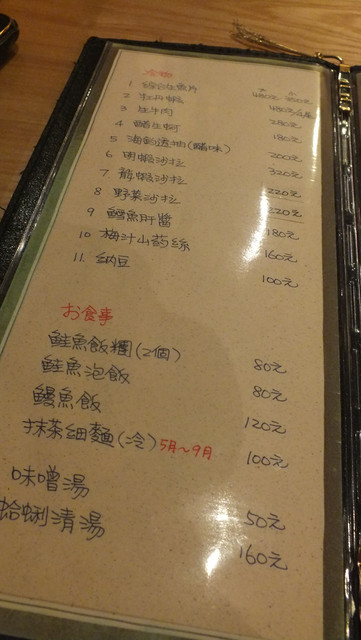 冷物
1 綜合生魚片 大 小
2 牡丹蝦
3 生牛肉
4 醋生蚵 280元
5 海鮮達物(醋味) 180元
6 明蝦沙拉 200元
7 龍蝦沙拉 320元
8 野菜沙拉 220元
9 鱈魚肝醬 220元
10 梅汁山葯絲 180元
11. 納豆 160元
100元
お食事
鮭魚飯糰(2個) 80元
鮭魚泡飯 80元
鰻魚飯 120元
抹茶細麵(冷)5月~9月 100元
味噌湯 50元
蛤蜊清湯 160元